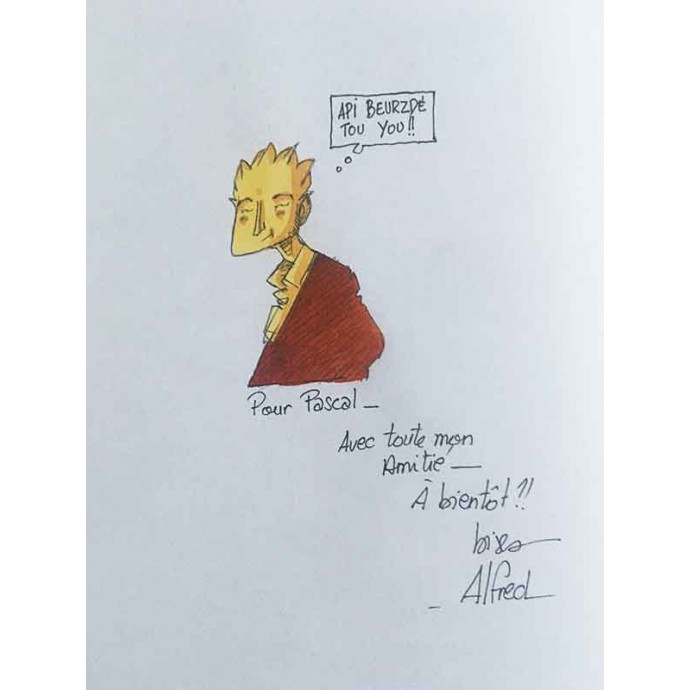 API BEURZDÉ
TOU YOU!!
Pour Pascal_
Avec toute mon
Amitié_
À bientôt!!
bises
_ Alfred